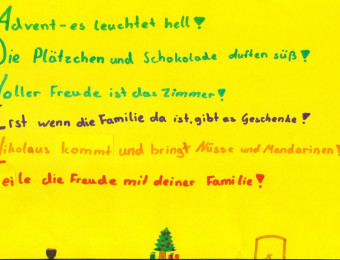 Advent-es leuchtet hell!
Die Plätzchen und Schokolade duften süß!
Voller Freude ist das Zimmer!
Erst wenn die Familie da ist, gibt es Geschenke!
Nikolaus kommt und bringt Nüsse und Mandarinen!
Teile die Freude mit deiner Familie!